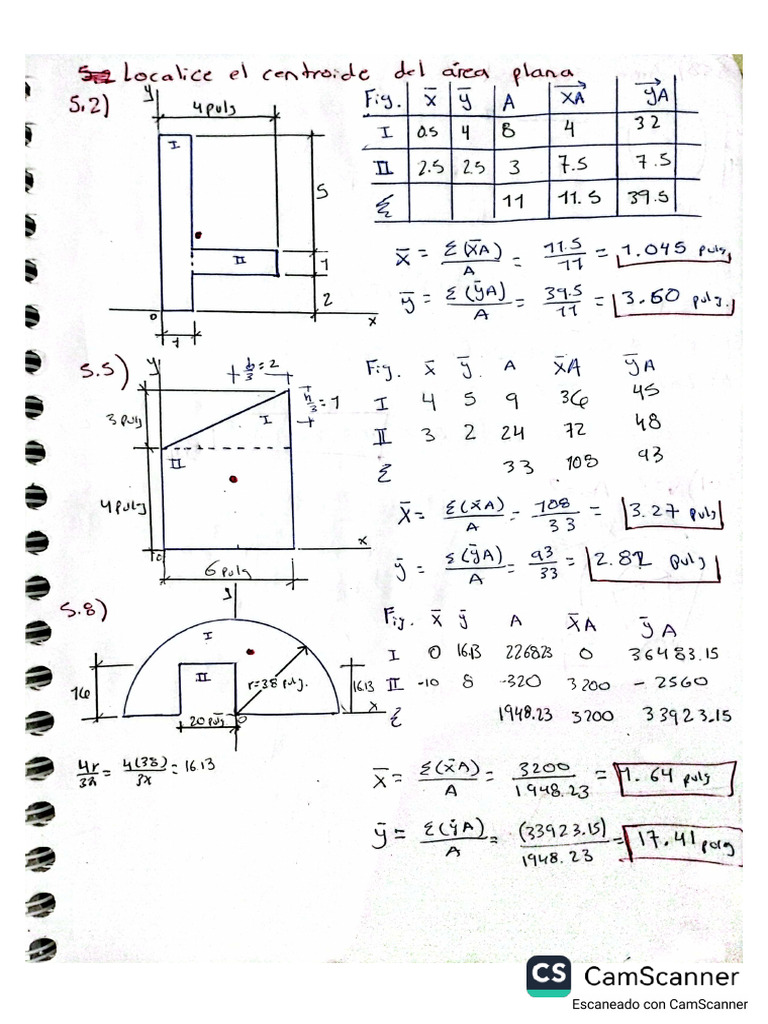 5.2 Localice el centroide del área plana
5.2)
y
4 pulg
I
5
II
1
2
0
x
1
Fig. x̄ ȳ A x̄A ȳA
I 0.5 4 8 4 32
II 2.5 2.5 3 7.5 7.5
Σ 11 11.5 39.5
x̄ = Σ(x̄A)/A = 11.5/11 = 1.045 pulg
ȳ = Σ(ȳA)/A = 39.5/11 = 3.60 pulg.
5.5)
y
b/3 = 2
h/3 = 1
3 pulg
I
II
4 pulg
0
x
6 pulg
Fig. x̄ ȳ. A x̄A ȳA
I 4 5 9 36 45
II 3 2 24 72 48
Σ 33 108 93
x̄ = Σ(x̄A)/A = 108/33 = 3.27 pulg
ȳ = Σ(ȳA)/A = 93/33 = 2.82 pulg
5.8)
y
I
II
r=38 pulg.
16
16.13
x
0
20 pulg
4r/3π = 4(38)/3π = 16.13
Fig. x̄ ȳ A x̄A ȳA
I 0 16.13 2268.23 0 36483.15
II -10 8 -320 3200 -2560
Σ 1948.23 3200 33923.15
x̄ = Σ(x̄A)/A = 3200/1948.23 = 1.64 pulg
ȳ = Σ(ȳA)/A = (33923.15)/1948.23 = 17.41 pulg
CS CamScanner
Escaneado con CamScanner